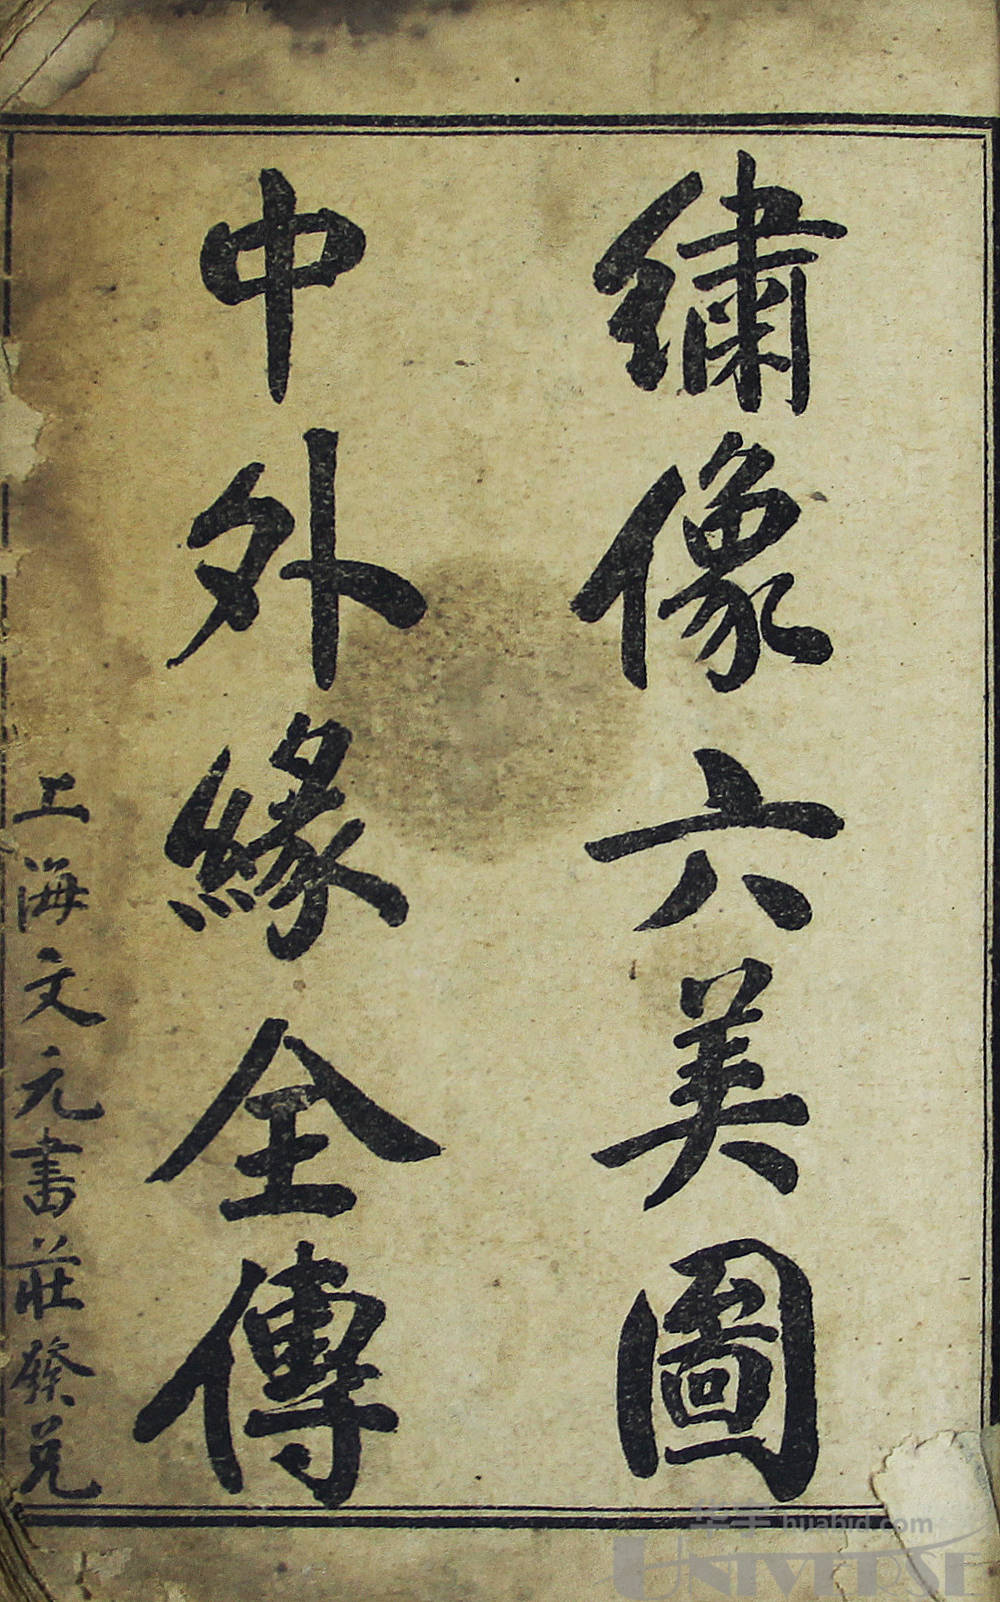 繡像六美圖
中外緣全傳
上海文元書莊發兌
huabid.com
UNIVERSE